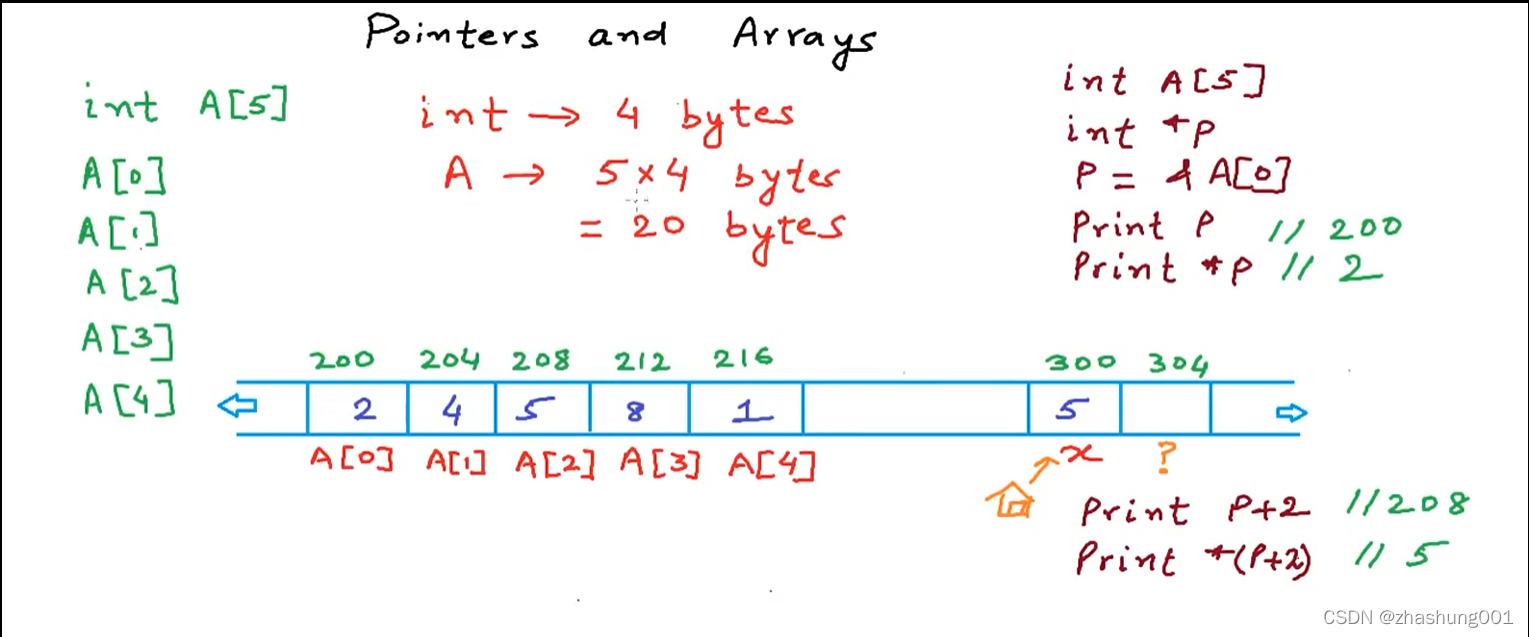 Pointers and Arrays
int A[5]
A[0]
A[1]
A[2]
A[3]
A[4]
int → 4 bytes
A → 5×4 bytes
= 20 bytes
int A[5]
int *P
P = &A[0]
Print P // 200
Print *P // 2
200 204 208 212 216 300 304
2 4 5 8 1 5
A[0] A[1] A[2] A[3] A[4] x ?
Print P+2 //208
Print *(P+2) // 5
CSDN @zhashung001